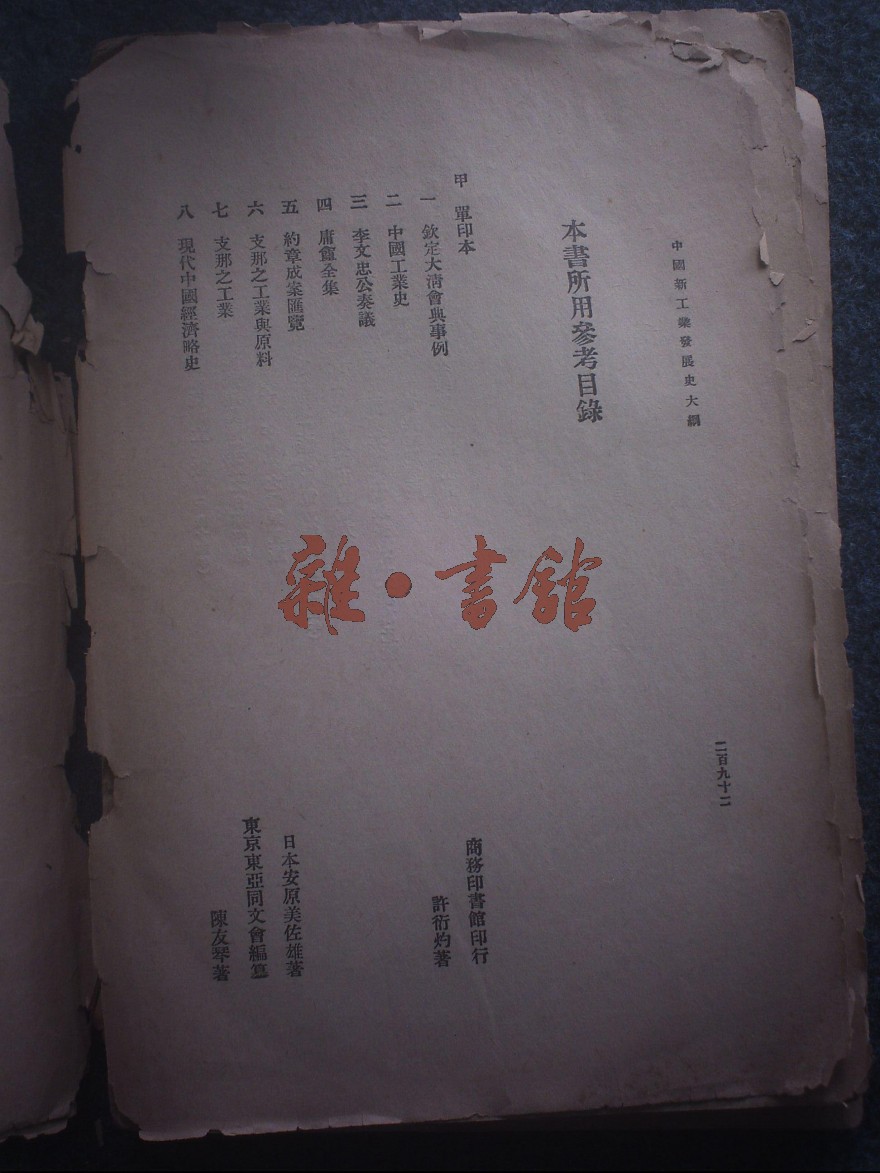 中國新工業發展史大綱
二百九十二
本書所用參考目錄
甲　單印本
一　欽定大清會典事例　商務印書館印行
二　中國工業史　許衍灼著
三　李文忠公奏議
四　庸盦全集
五　約章成案匯覽
六　支那之工業與原料　日本安原美佐雄著
七　支那之工業　東京東亞同文會編篡
八　現代中國經濟略史　陳友琴著
雜·書館